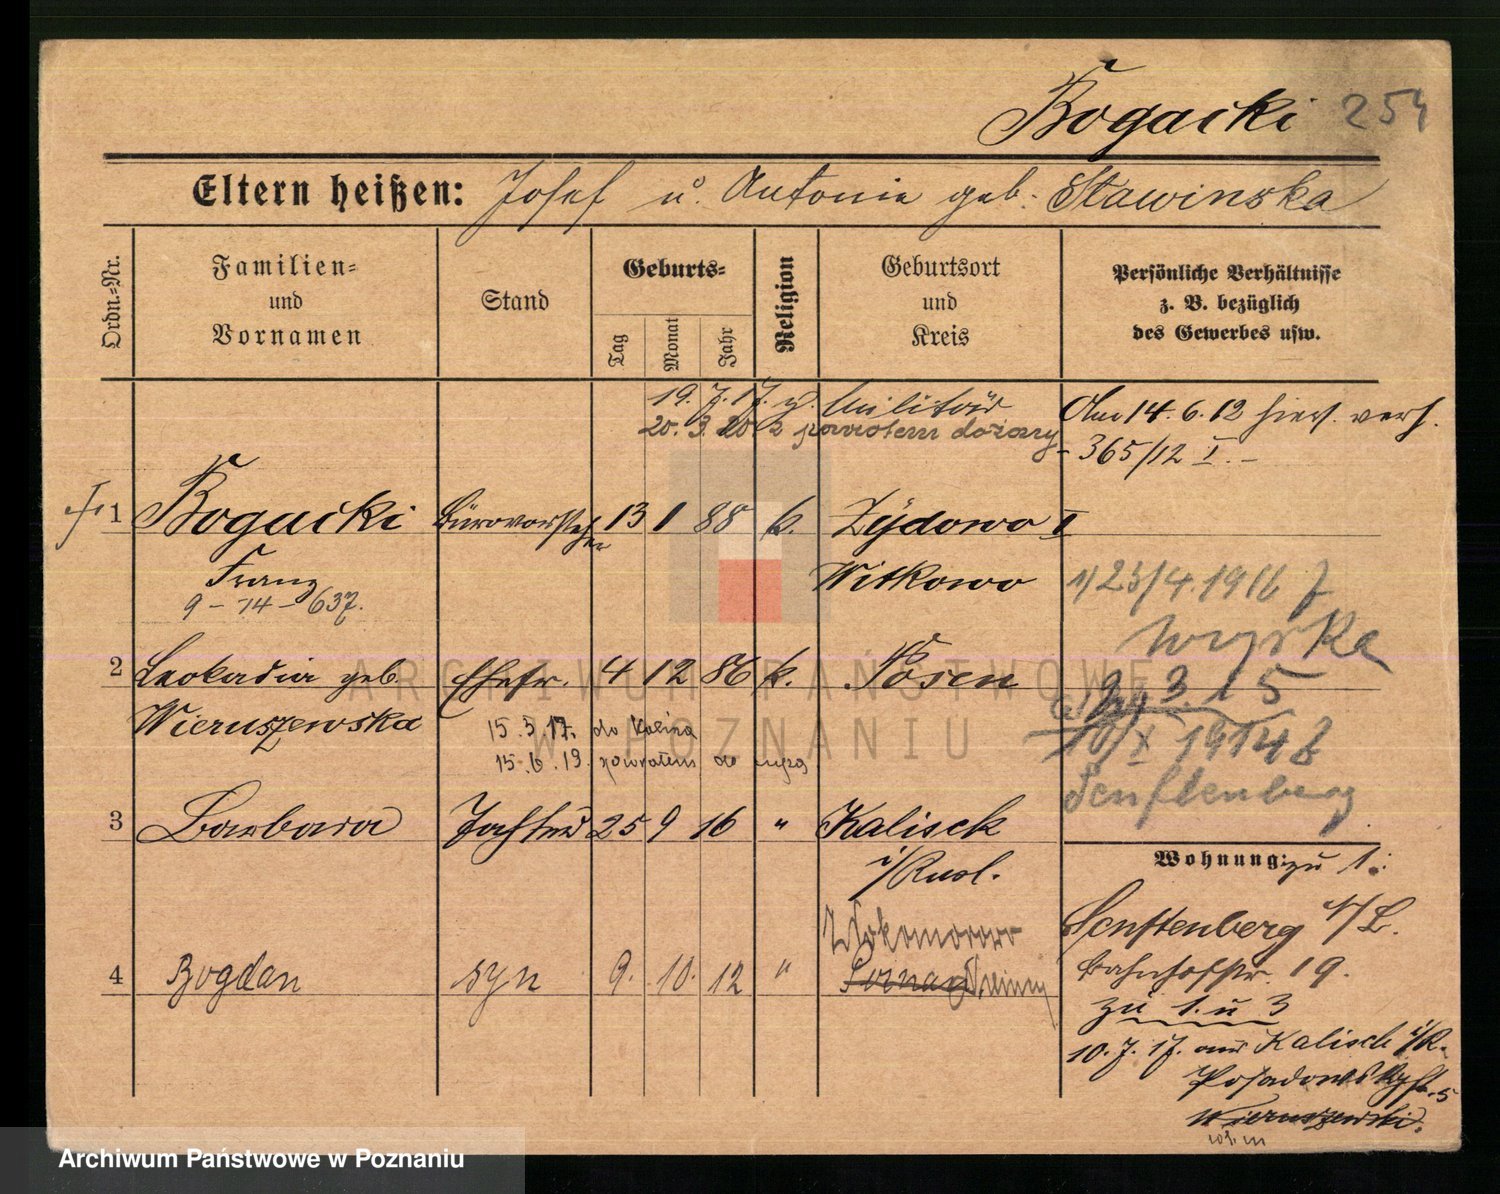 Bogacki 254
Eltern heißen: Josef u. Antonie geb. Stawinska
Ordn.-Nr.
Familien-
und
Vornamen
Stand
Geburts-
Tag
Monat
Jahr
Religion
Geburtsort
und
Kreis
Persönliche Verhältnisse
z. B. bezüglich
des Gewerbes usw.
19. 7. 17. z. Militär
20. 3. 20. z powrotem do żony
Am 14. 6. 12 hier. verh.
- 365/12 I. -
1 Bogacki Bürovorsteher 13 1 88 k. Żydowo
Franz Witkowo
9 - 14 - 637.
1) 23/4. 1916
2 Leokadia geb. Ehefr. 4 12 86 k. Posen
Wieruszewska
2. 3. 15
15. 3. 17. do Kalisza
15. 6. 19. powrotem do męża
10/X 1914
Senftenberg
3 Barbara Tochter 25 9 16 " Kalisch
i/Rusl.
Wohnung: zu 1:
Senftenberg i/L.
Bahnhofstr. 19.
4 Bogdan syn 9. 10. 12 "
zu 1. u 3
10. 7. 17. aus Kalisch i/R.
Posadowskystr. 5
Wieruszewski.
ARCHIWUM PAŃSTWOWE
W POZNANIU
Archiwum Państwowe w Poznaniu